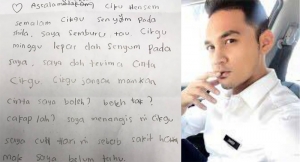 Assalamualaikum Cikgu Hensem
semalam Cikgu senyum pada
dia, saya cemburu tau. Cikgu
minggu lepas dah senyum pada
saya, saya dah terima cinta
Cikgu. Cikgu jangan mainkan
cinta saya boleh? boleh tak?
cakap lah? saya menangis ni cikgu
saya cuti hari ni sebab sakit hati
mak saya belum tahu.